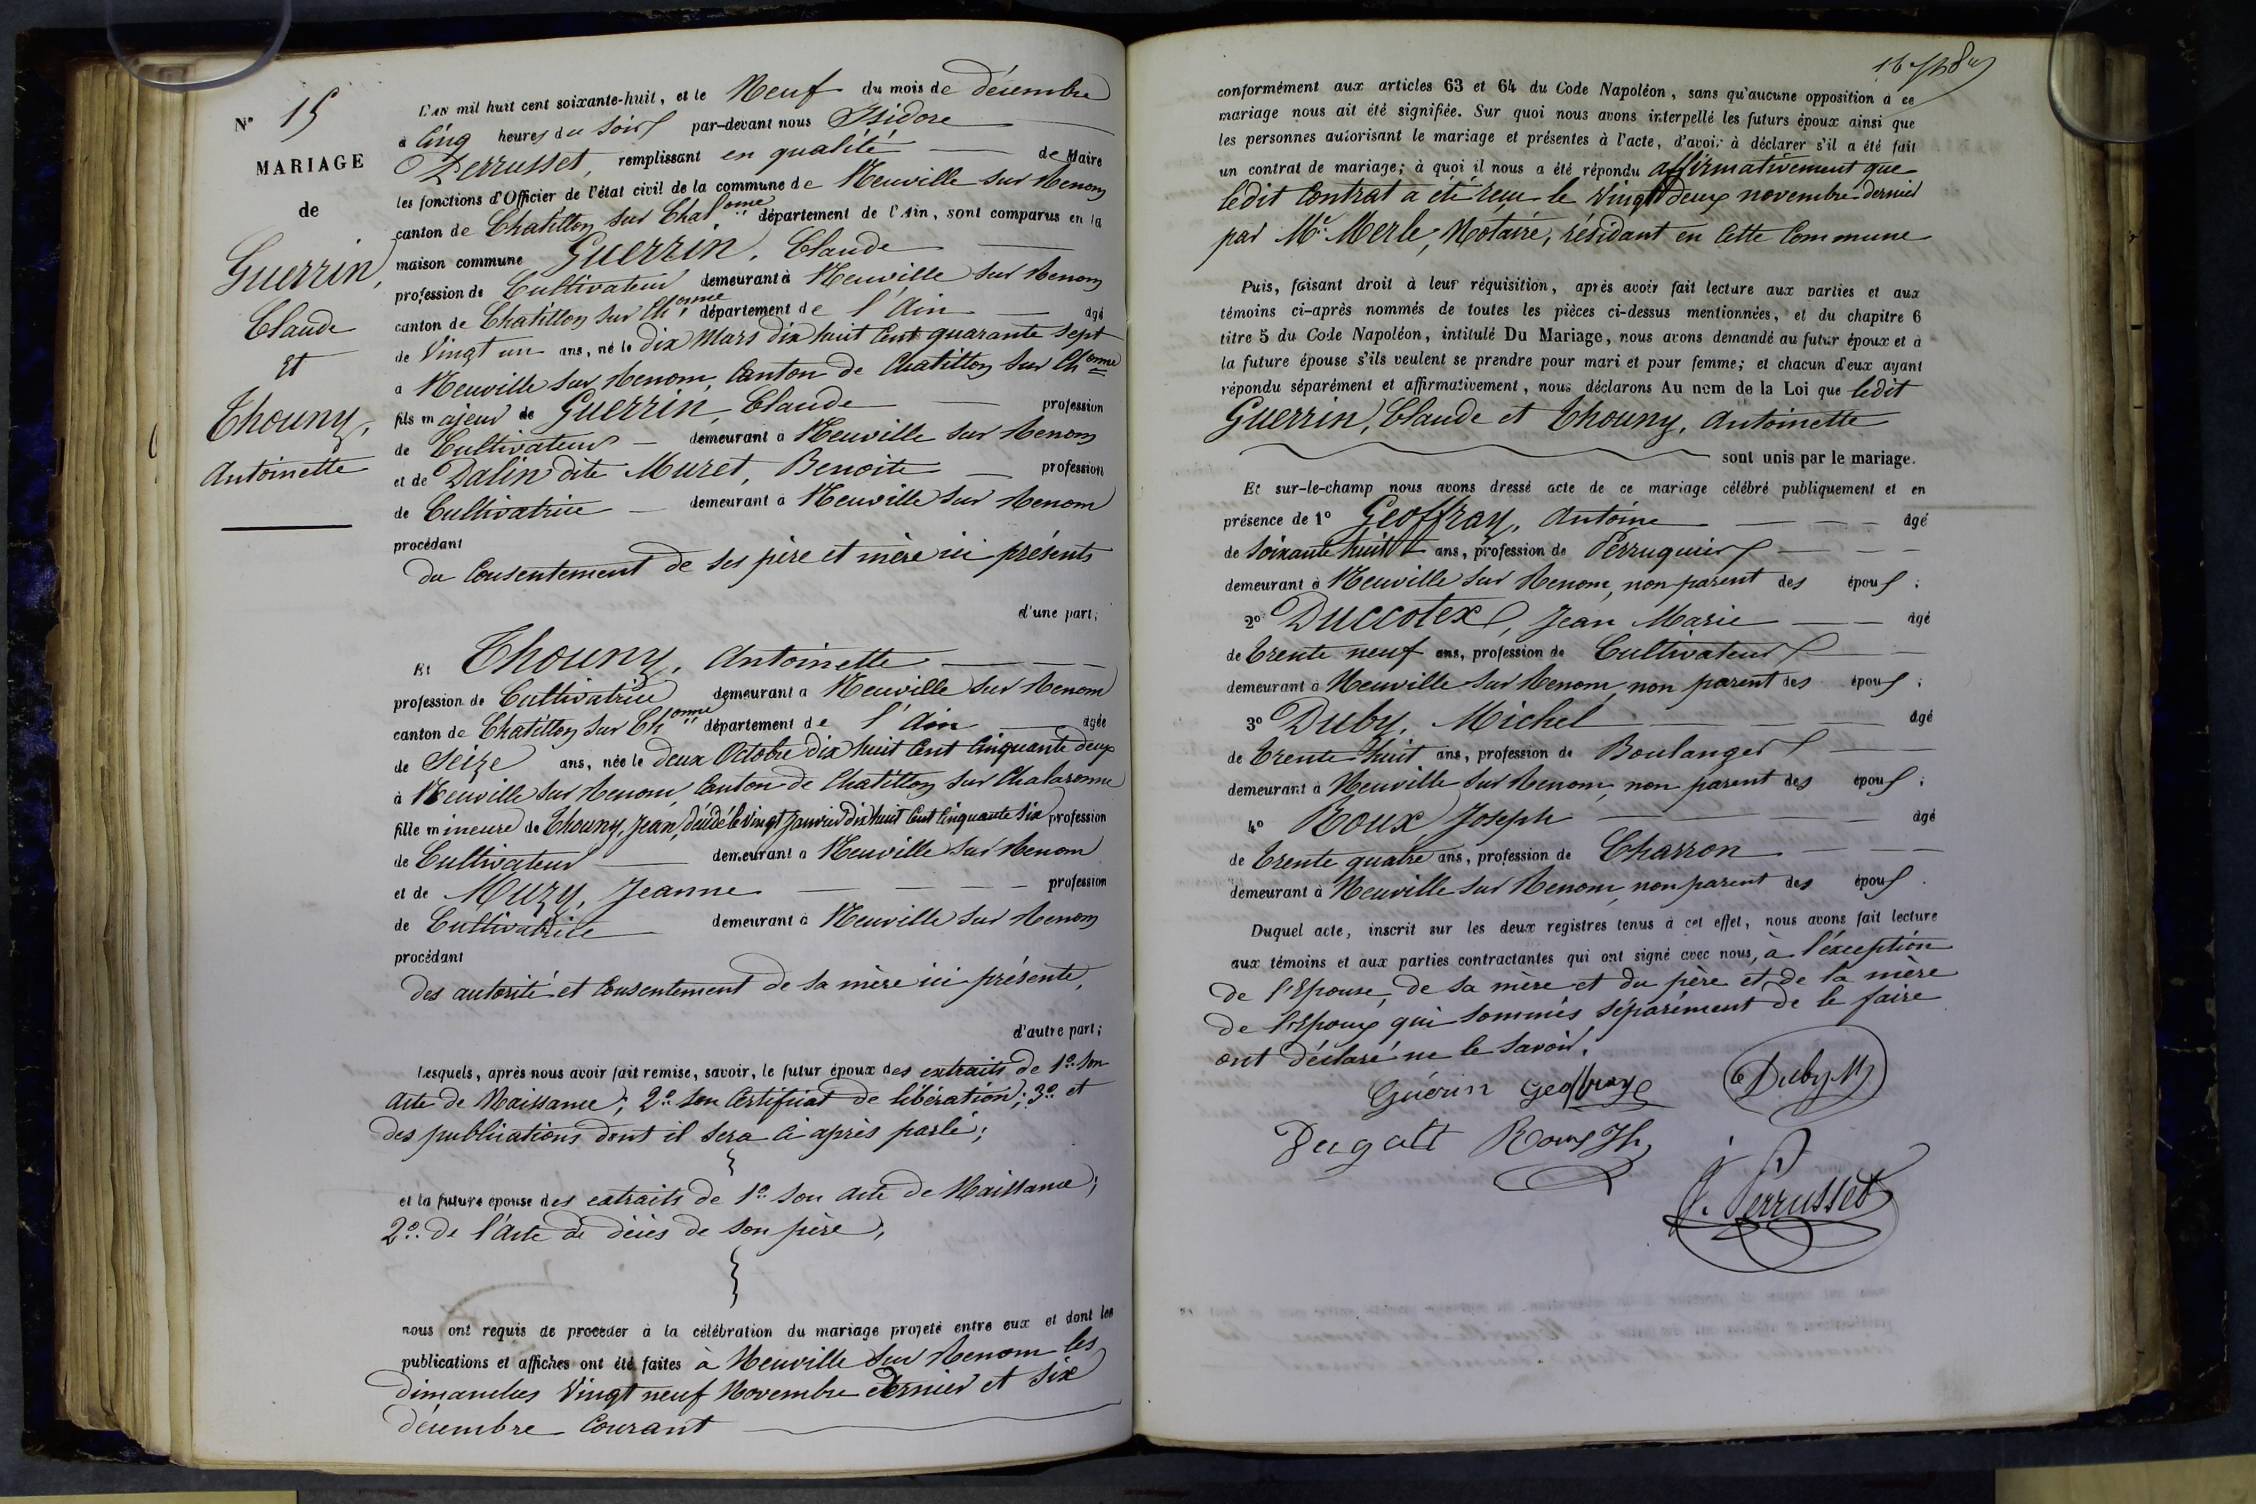 N° 15
MARIAGE
de
Guerrin,
Claude
Et
Thouny,
Antoinette
L'an mil huit cent soixante-huit, et le Neuf du mois de décembre
à Cinq heures du Soir par-devant nous Isidore
Perrusset, remplissant en qualité de Maire
les fonctions d'Officier de l'état civil de la commune de Neuville sur Renom
canton de Chatillon sur Chalonne département de l'Ain, sont comparus en la
maison commune Guerrin, Claude
profession de Cultivateur demeurant à Neuville sur Renom
canton de Chatillon sur Chonne département de l'Ain âgé
de Vingt un ans, né le dix Mars dix huit Cent quarante sept
à Neuville sur Renom, Canton de Chatillon sur Chonne
fils majeur de Guerrin, Claude profession
de Cultivateur demeurant à Neuville sur Renom
et de Dalin dite Muret, Benoite profession
de Cultivatrice demeurant à Neuville sur Renom
procédant
du Consentement de ses père et mère ici présents
d'une part;
Et Thouny, Antoinette
profession de Cultivatrice demeurant à Neuville sur Renom
canton de Chatillon sur Chonne département de l'Ain âgée
de Seize ans, née le deux Octobre dix huit Cent Cinquante deux
à Neuville sur Renom, Canton de Chatillon sur Chalaronne
fille mineure de Thouny, Jean, décédé le vingt Janvier dix huit Cent Cinquante six profession
de Cultivateur demeurant à Neuville sur Renom
et de Muzy, Jeanne profession
de Cultivatrice demeurant à Neuville sur Renom
procédant
des autorité et Consentement de sa mère ici présente,
d'autre part;
Lesquels, après nous avoir fait remise, savoir, le futur époux des extraits de 1° Son
Acte de Naissance; 2° Son Certificat de libération; 3° et
des publications dont il sera Ci après parlé;
et la future épouse des extraits de 1° Son Acte de Naissance;
2° De l'Acte de décès de son père,
nous ont requis de procéder à la célébration du mariage projeté entre eux et dont les
publications et affiches ont été faites à Neuville sur Renom les
dimanches Vingt neuf Novembre dernier et Six
décembre Courant
conformément aux articles 63 et 64 du Code Napoléon, sans qu'aucune opposition à ce
mariage nous ait été signifiée. Sur quoi nous avons interpellé les futurs époux ainsi que
les personnes autorisant le mariage et présentes à l'acte, d'avoir à déclarer s'il a été fait
un contrat de mariage; à quoi il nous a été répondu affirmativement que
ledit Contrat a été reçu le Vingt deux novembre dernier
par Me Merle, Notaire, résidant en Cette Commune
Puis, faisant droit à leur réquisition, après avoir fait lecture aux parties et aux
témoins ci-après nommés de toutes les pièces ci-dessus mentionnées, et du chapitre 6
titre 5 du Code Napoléon, intitulé Du Mariage, nous avons demandé au futur époux et à
la future épouse s'ils veulent se prendre pour mari et pour femme; et chacun d'eux ayant
répondu séparément et affirmativement, nous déclarons Au nom de la Loi que ledit
Guerrin, Claude et Thouny, Antoinette
sont unis par le mariage.
Et sur-le-champ nous avons dressé acte de ce mariage célébré publiquement et en
présence de 1° Geoffray, Antoine âgé
de Soixante huit ans, profession de Perruquier
demeurant à Neuville sur Renom, non parent des époux;
2° Duccotex, Jean Marie âgé
de Trente neuf ans, profession de Cultivateur
demeurant à Neuville sur Renom, non parent des époux;
3° Duby, Michel âgé
de Trente huit ans, profession de Boulanger
demeurant à Neuville sur Renom, non parent des époux;
4° Roux, Joseph âgé
de Trente quatre ans, profession de Charron
demeurant à Neuville sur Renom, non parent des époux.
Duquel acte, inscrit sur les deux registres tenus à cet effet, nous avons fait lecture
aux témoins et aux parties contractantes qui ont signé avec nous, à l'exception
de l'Epouse, de sa mère et du père et de la mère
de l'Epoux qui Sommés Séparément de le faire
ont déclaré ne le Savoir.
Guérin Geoffray Duby M
Roux Jh
J. Perrusset